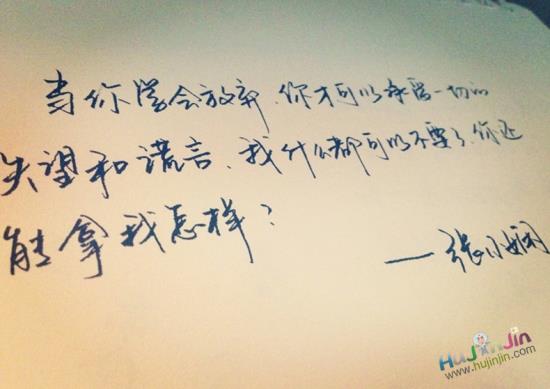 当你学会放弃、你才可以承受一切的
失望和谎言、我什么都可以不要了、你还
能拿我怎样？
——张小娴
HuJinJin
www.hujinjin.com